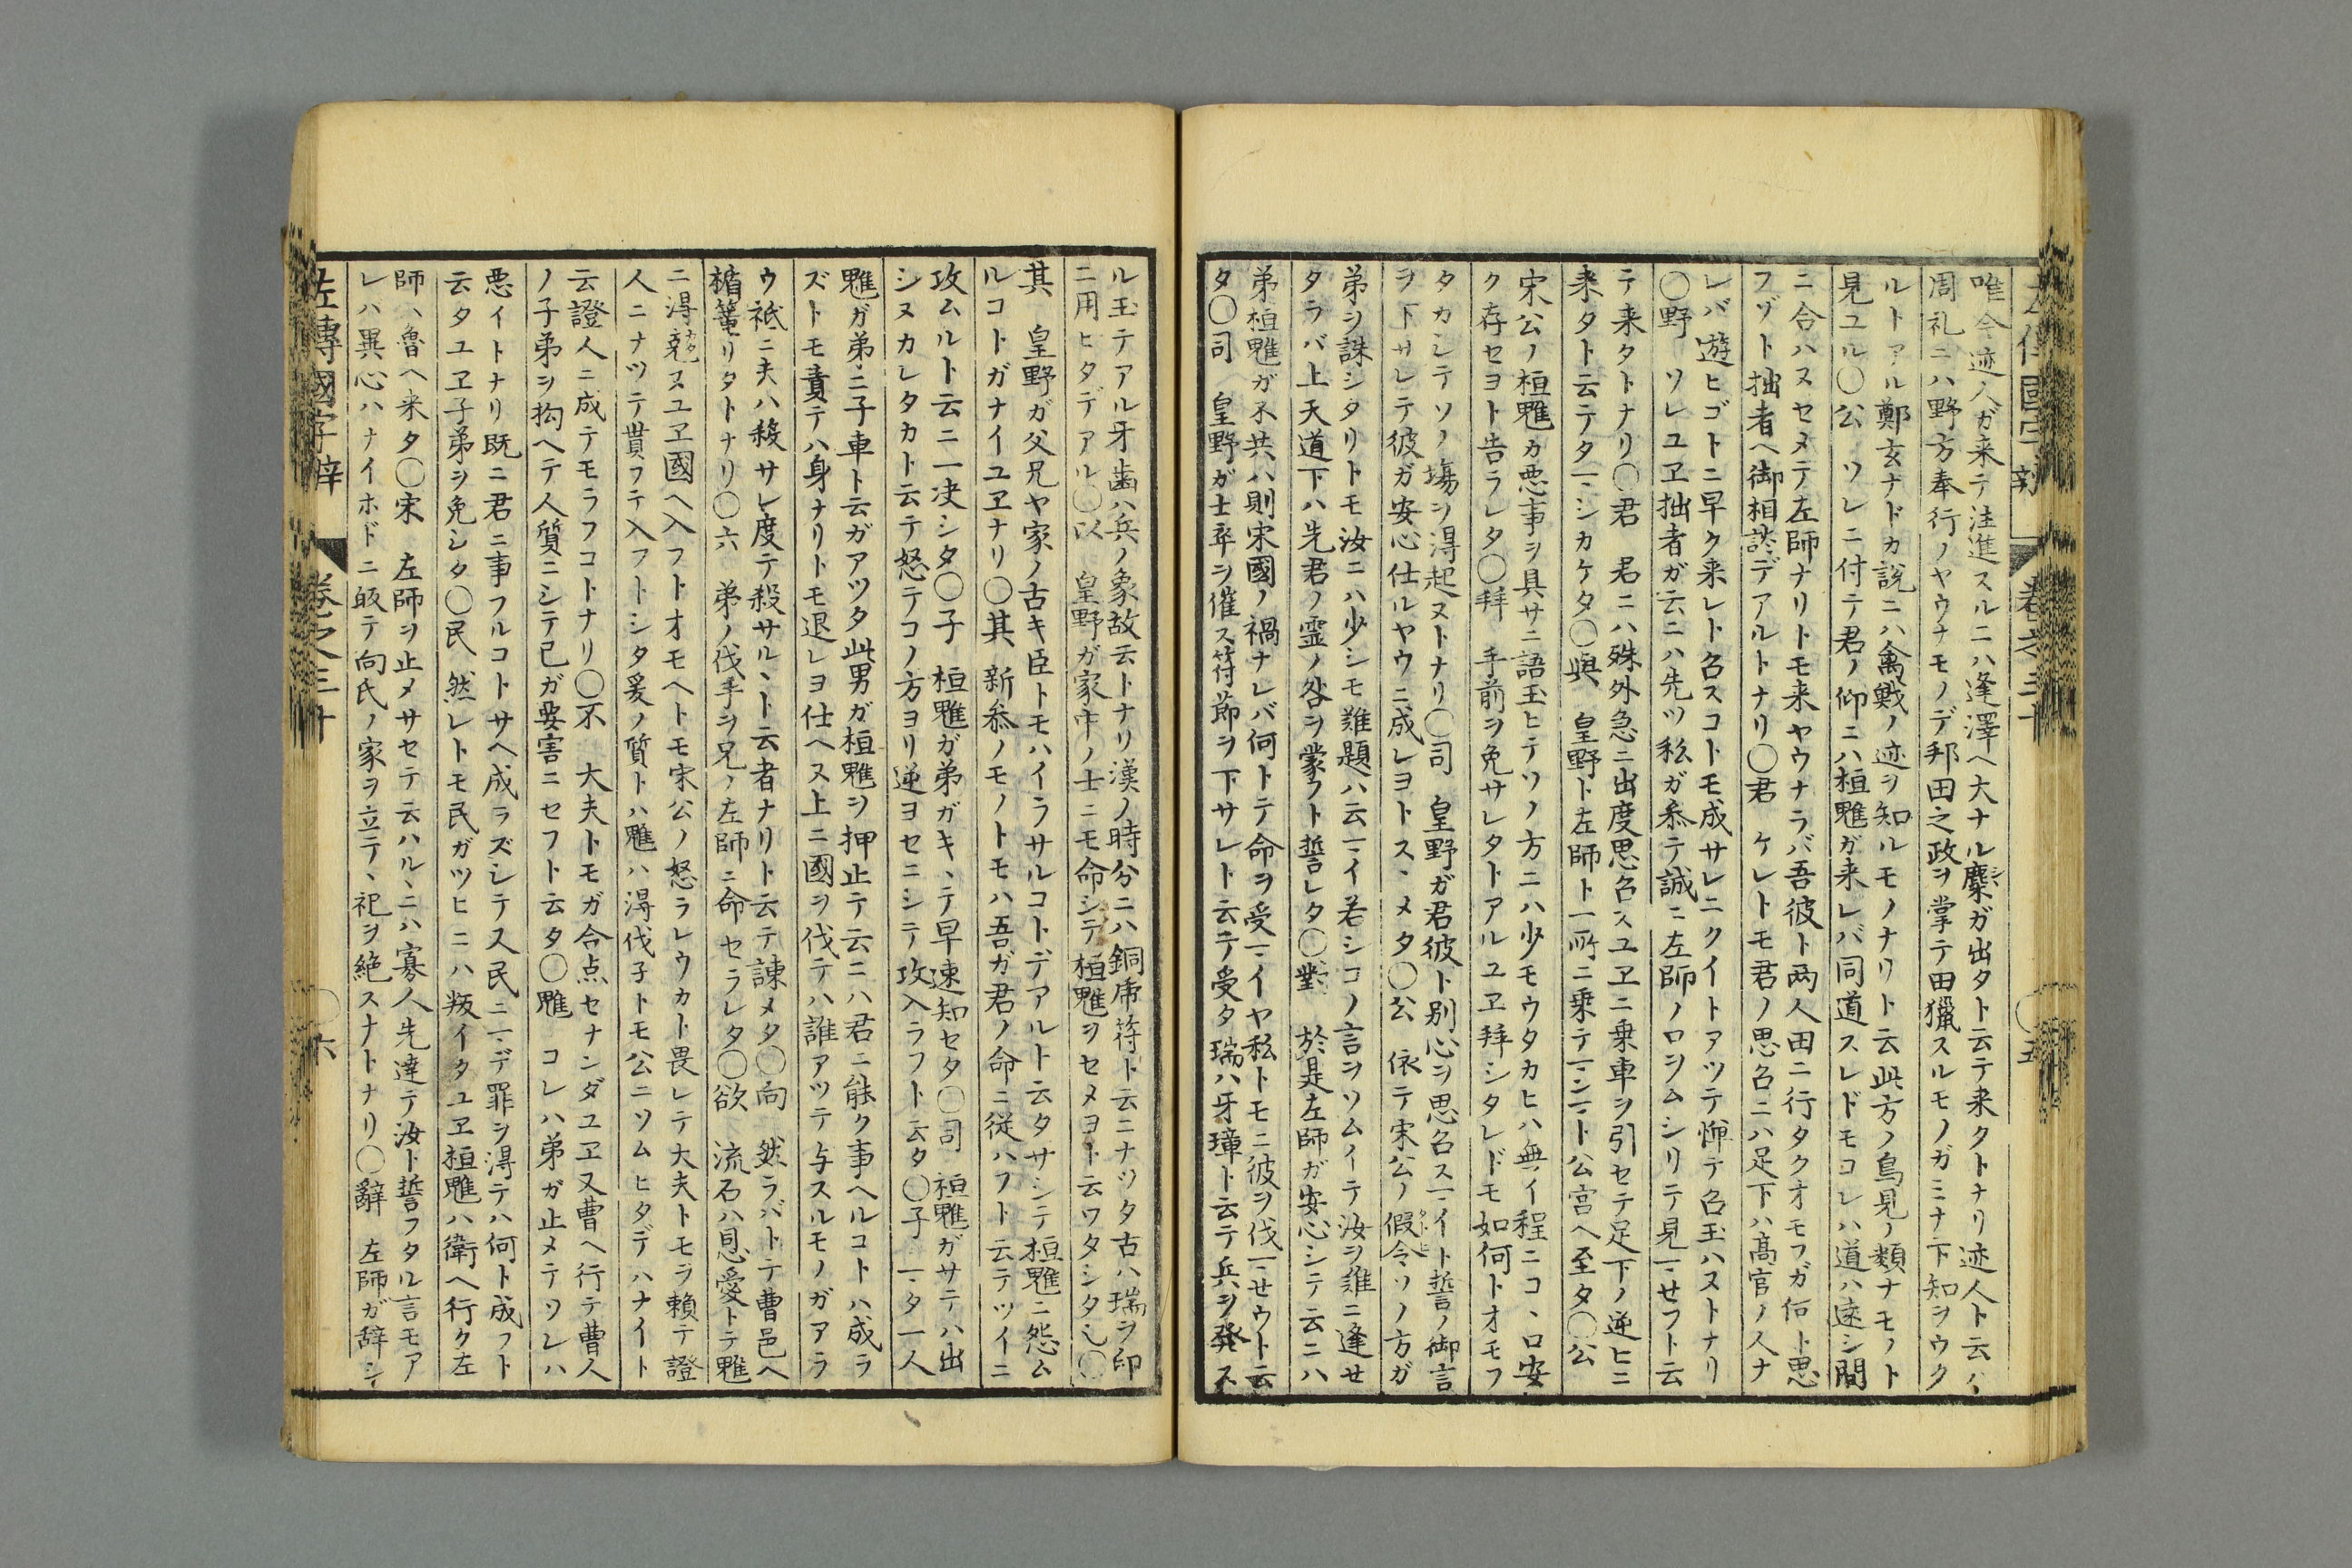 唯今迹人ガ来テ注進スルニハ逢澤ヘ大ナル麋ガ出タト云テ来タトナリ迹人ト云ハ
周礼ニハ野方奉行ノヤウナモノデ邦田之政ヲ掌テ田獵スルモノガミナ下知ヲウク
ルトアル鄭玄ナドカ説ニハ禽戰ノ迹ヲ知ルモノナリト云此方ノ鳥見ノ類ナモノト
見ユル〇公 ソレニ付テ君ノ仰ニハ桓魋ガ来レバ同道スレドモコレハ道ハ遠シ間
ニ合ハヌセメテ左師ナリトモ来ヤウナラバ吾彼ト両人田ニ行タクオモフガ何ト思
フゾト拙者ヘ御相談デアルトナリ〇君 ケレトモ君ノ思召ニハ足下ハ髙官ノ人ナ
レバ遊ヒゴトニ早ク来レト召スコトモ成サレニクイトアツテ憚テ召玉ハヌトナリ
〇野 ソレユヱ拙者ガ云ニハ先ツ私ガ参テ誠ニ左師ノ口ヲムシリテ見マセフト云
テ来タトナリ〇君 君ニハ殊外急ニ出度思召スユヱニ乗車ヲ引セテ足下ノ逆ヒニ
来タト云テタマシカケタ〇與 皇野ト左師ト一所ニ乗テマンマト公宮ヘ至タ〇公
宋公ノ桓魋カ悪事ヲ具サニ語玉ヒテソノ方ニハ少モウタカヒハ無イ程ニコヽロ安
ク存セヨト告ラレタ〇拜 手前ヲ免サレタトアルユヱ拜シタレドモ如何トオモフ
タカシテソノ塲ヲ得起ヌトナリ〇司 皇野ガ君彼ト別心ヲ思召スマイト誓ノ御言
ヲ下サレテ彼ガ安心仕ルヤウニ成レヨトスヽメタ〇公 依テ宋公ノ假令ソノ方ガ
弟ヲ誅シタリトモ汝ニハ少シモ難題ハ云マイ若シコノ言ヲソムイテ汝ヲ難ニ逢セ
タラバ上天道下ハ先君ノ霊ノ咎ヲ蒙フト誓レタ〇對 於是左師ガ安心シテ云ニハ
弟桓魋ガ不共ハ則宋國ノ禍ナレバ何トテ命ヲ受マイヤ私トモニ彼ヲ伐マセウト云
タ〇司 皇野ガ士卒ヲ催ス符節ヲ下サレト云テ受タ瑞ハ牙璋ト云テ兵ヲ発ス
ル玉テアル牙歯ハ兵ノ象故云トナリ漢ノ時分ニハ銅虎符ト云ニナツタ古ハ瑞ヲ印
ニ用ヒタデアル〇以 皇野ガ家中ノ士ニモ命シテ桓魋ヲセメヨト云ワタシタ也〇
其 皇野ガ父兄ヤ家ノ古キ臣トモハイラサルコトデアルト云タサシテ桓魋ニ怨ム
ルコトガナイユヱナリ〇其 新参ノモノトモハ吾ガ君ノ命ニ従ハフト云テツイニ
攻ムルト云ニ一决シタ〇子 桓魋ガ弟ガキヽテ早速知セタ〇司 桓魋ガサテハ出
シヌカレタカト云テ怒テコノ方ヨリ逆ヨセニシテ攻入ラフト云タ〇子 マタ一人
魋ガ弟ニ子車ト云ガアツタ此男ガ桓魋ヲ押止テ云ニハ君ニ能ク事ヘルコトハ成ラ
ズトモ責テハ身ナリトモ退レヨ仕ヘヌ上ニ國ヲ伐テハ誰アツテ与スルモノガアラ
ウ祗ニ夫ハ殺サレ度テ殺サルヽト云者ナリト云テ諫メタ〇向 然ラバトテ曹邑ヘ
楯篭リタトナリ〇六 弟ノ伐手ヲ兄ノ左師ニ命セラレタ〇欲 流石ハ恩愛トテ魋
ニ得克ヌユヱ國ヘ入フトオモヘトモ宋公ノ怒ラレウカト畏レテ大夫トモヲ頼テ證
人ニナツテ貰フテ入フトシタ爰ノ質トハ魋ハ得伐子トモ公ニソムヒタデハナイト
云證人ニ成テモラフコトナリ〇不 大夫トモガ合点セナンダユヱ又曹ヘ行テ曹人
ノ子弟ヲ拘ヘテ人質ニシテ己ガ要害ニセフト云タ〇魋 コレハ弟ガ止メテソレハ
悪イトナリ既ニ君ニ事フルコトサヘ成ラズシテ又民ニマデ罪ヲ得テハ何ト成フト
云タユヱ子弟ヲ免シタ〇民 然レトモ民ガツヒニハ叛イタユヱ桓魋ハ衛ヘ行ク左
師ハ魯ヘ来タ〇宋 左師ヲ止メサセテ云ハルヽニハ寡人先達テ汝ト誓フタル言モア
レハ異心ハナイホドニ皈テ向氏ノ家ヲ立テヽ祀ヲ絶スナトナリ〇辭 左師ガ辞シ
左傳國字辯 卷之三十 〇六